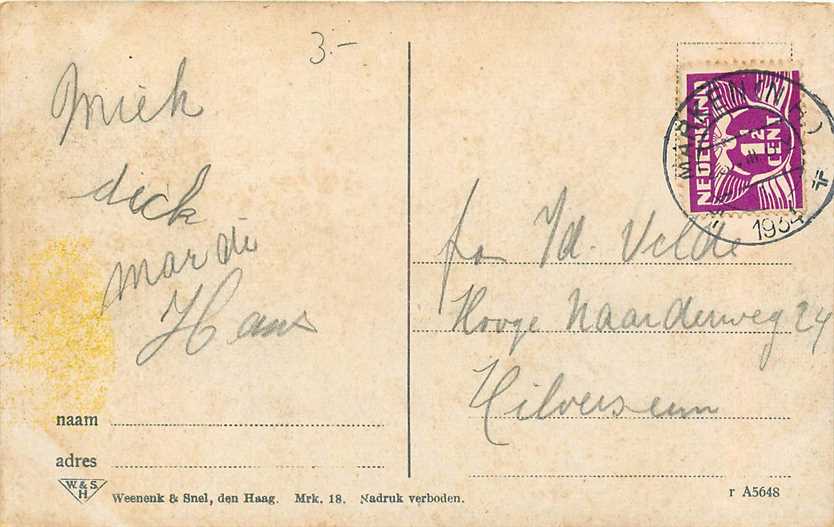 3.-
Miek
dick
mardi
Hans
naam
adres
W. & S.
H
Weenenk & Snel, den Haag. Mrk. 18. Nadruk verboden.
NEDERLAND
1½
CENT
MARKEN
1934
fam v/d. Velde
Hooge Naarderweg 24
Hilversum
r A5648